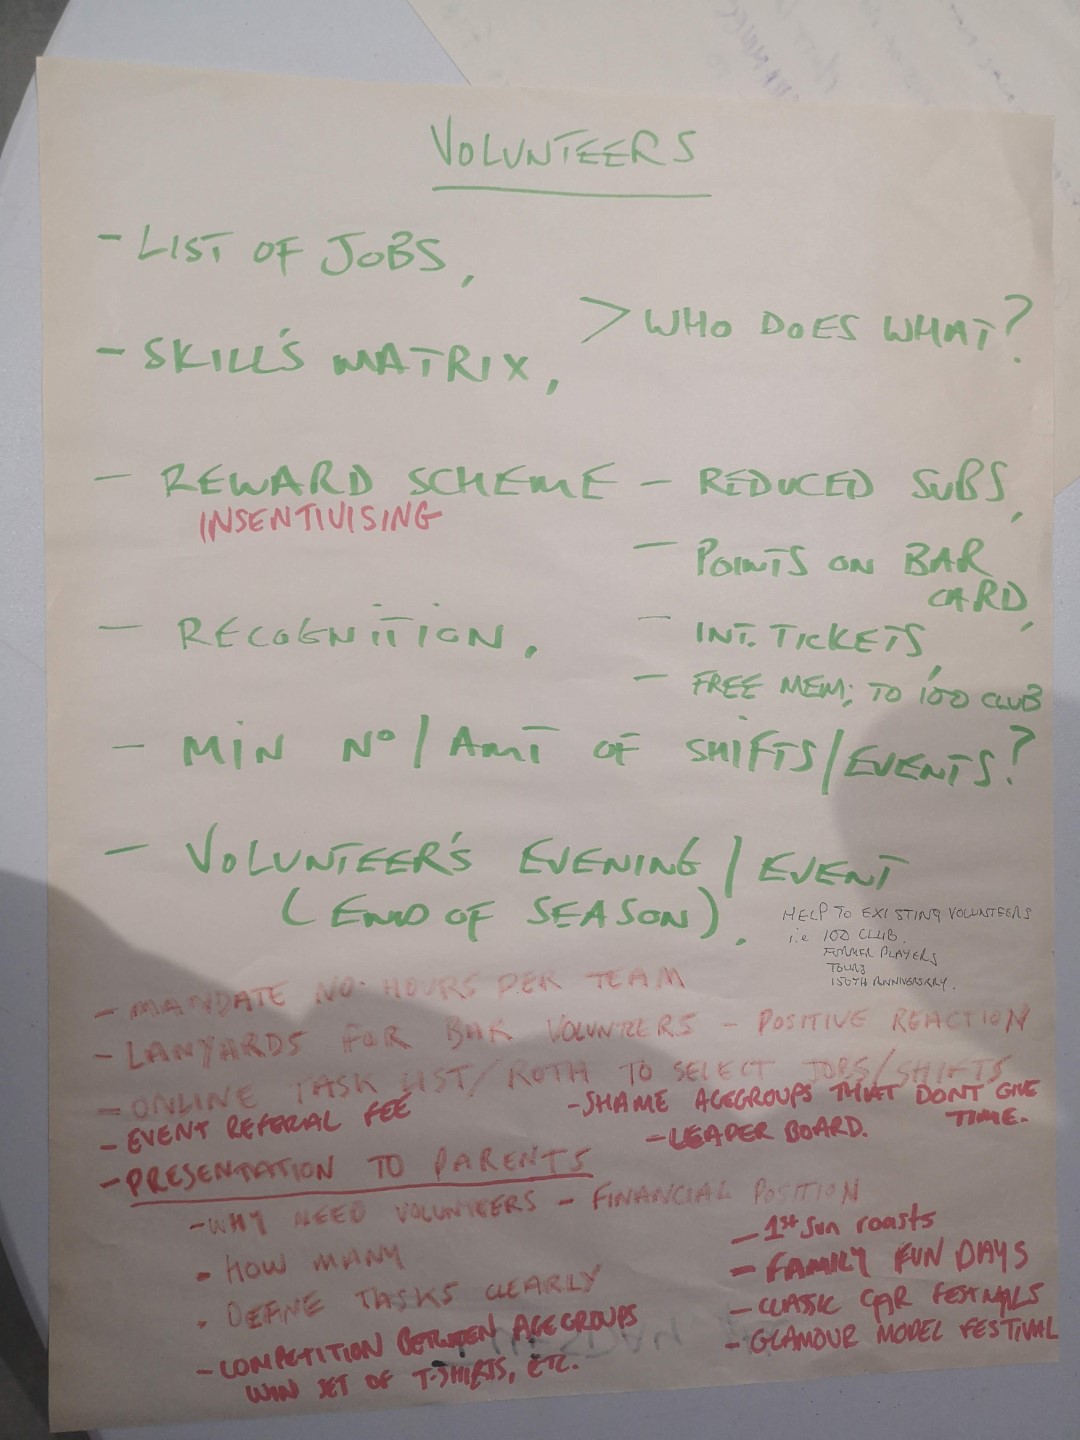 VOLUNTEERS
- LIST OF JOBS,
> WHO DOES WHAT?
- SKILL'S MATRIX,
- REWARD SCHEME - REDUCED SUBS,
INSENTIVISING
- POINTS ON BAR
CARD,
- RECOGNITION,
- INT. TICKETS,
- FREE MEM; TO 100 CLUB
- MIN Nº/AMT OF SHIFTS/EVENTS?
- VOLUNTEER'S EVENING/EVENT
(END OF SEASON).
HELP TO EXISTING VOLUNTEERS
i.e 100 CLUB.
FORMER PLAYERS
TOURS
150TH ANNIVERSARY.
- MANDATE NO. HOURS PER TEAM
- LANYARDS FOR BAR VOLUNTEERS - POSITIVE REACTION
- ONLINE TASK LIST/ROTA TO SELECT JOBS/SHIFTS
- EVENT REFERAL FEE
- SHAME AGEGROUPS THAT DONT GIVE
TIME.
- LEADER BOARD.
- PRESENTATION TO PARENTS
- WHY NEED VOLUNTEERS - FINANCIAL POSITION
- HOW MANY
. DEFINE TASKS CLEARLY
- COMPETITION BETWEEN AGEGROUPS
WIN SET OF T-SHIRTS, ETC.
- 1st Sun roasts
- FAMILY FUN DAYS
- CLASSIC CAR FESTIVALS
- GLAMOUR MODEL FESTIVAL